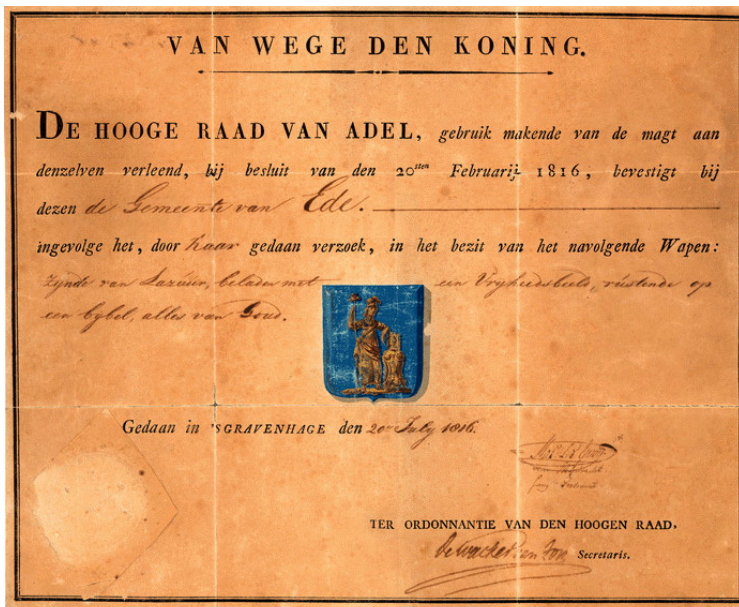 VAN WEGE DEN KONING.
DE HOOGE RAAD VAN ADEL, gebruik makende van de magt aan
denzelven verleend, bij besluit van den 20sten Februarij 1816, bevestigt bij
dezen de Gemeente van Ede.
ingevolge het, door haar gedaan verzoek, in het bezit van het navolgende Wapen:
Zynde van Lazuur, beladen met een Vryheidsbeeld, rustende op
een bybel, alles van Goud.
Gedaan in 'SGRAVENHAGE den 20 July 1816.
TER ORDONNANTIE VAN DEN HOOGEN RAAD,
Secretaris.